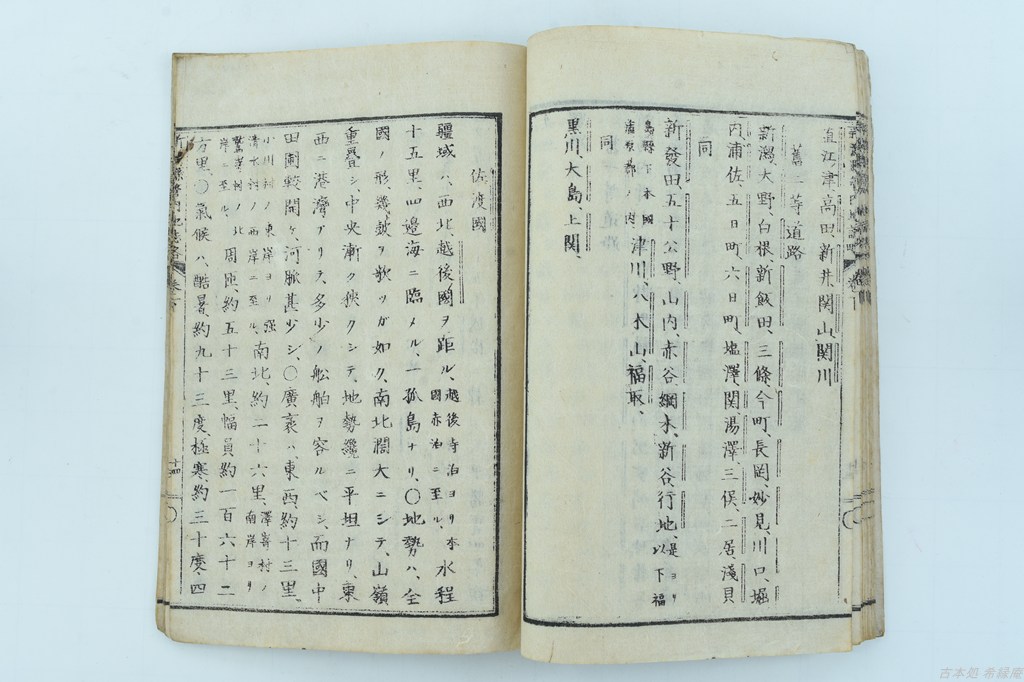 直江津、高田、新井、関山、関川
舊二等道路
新潟、大野、白根、新飯田、三條、今町、長岡、妙見、川口、堀
内、浦佐、五日町、六日町、塩澤、関、湯澤、三俣、二居、淺貝
同
新發田、五十公野、山内、赤谷、綱木、新谷、行地、是ヨリ以下福
島縣下本國蒲原郡ノ内津川、八木山、福取、
同
黒川、大島、上関、
佐渡國
疆域ハ、西北、越後國ヲ距ル、越後寺泊ヨリ本國赤泊ニ至ル、水程
十五里、四邉海ニ臨メル、一孤島ナリ、〇地勢ハ、全
國ノ形、幾ド鼓ヲ欹ツガ如ク、南北闊大ニシテ、山嶺
重疊シ、中央漸ク狹クシテ、地勢纔ニ平坦ナリ、東
西ニ港灣アリテ、多少ノ舩舶ヲ容ルベシ、而國中
田圃較開ケ、河脈甚少シ、〇廣袤ハ、東西、約十三里、
小川村ノ東岸ヨリ強清水村ノ西岸ニ至ル、南北、約二十六里、澤嵜村ノ南岸ヨリ
鷲嵜村ノ北岸ニ至ル、周匝、約五十三里、幅員、約一百六十二
方里、〇氣候ハ、酷暑、約九十三度、極寒、約三十度、四
十四
古本処 希縁庵